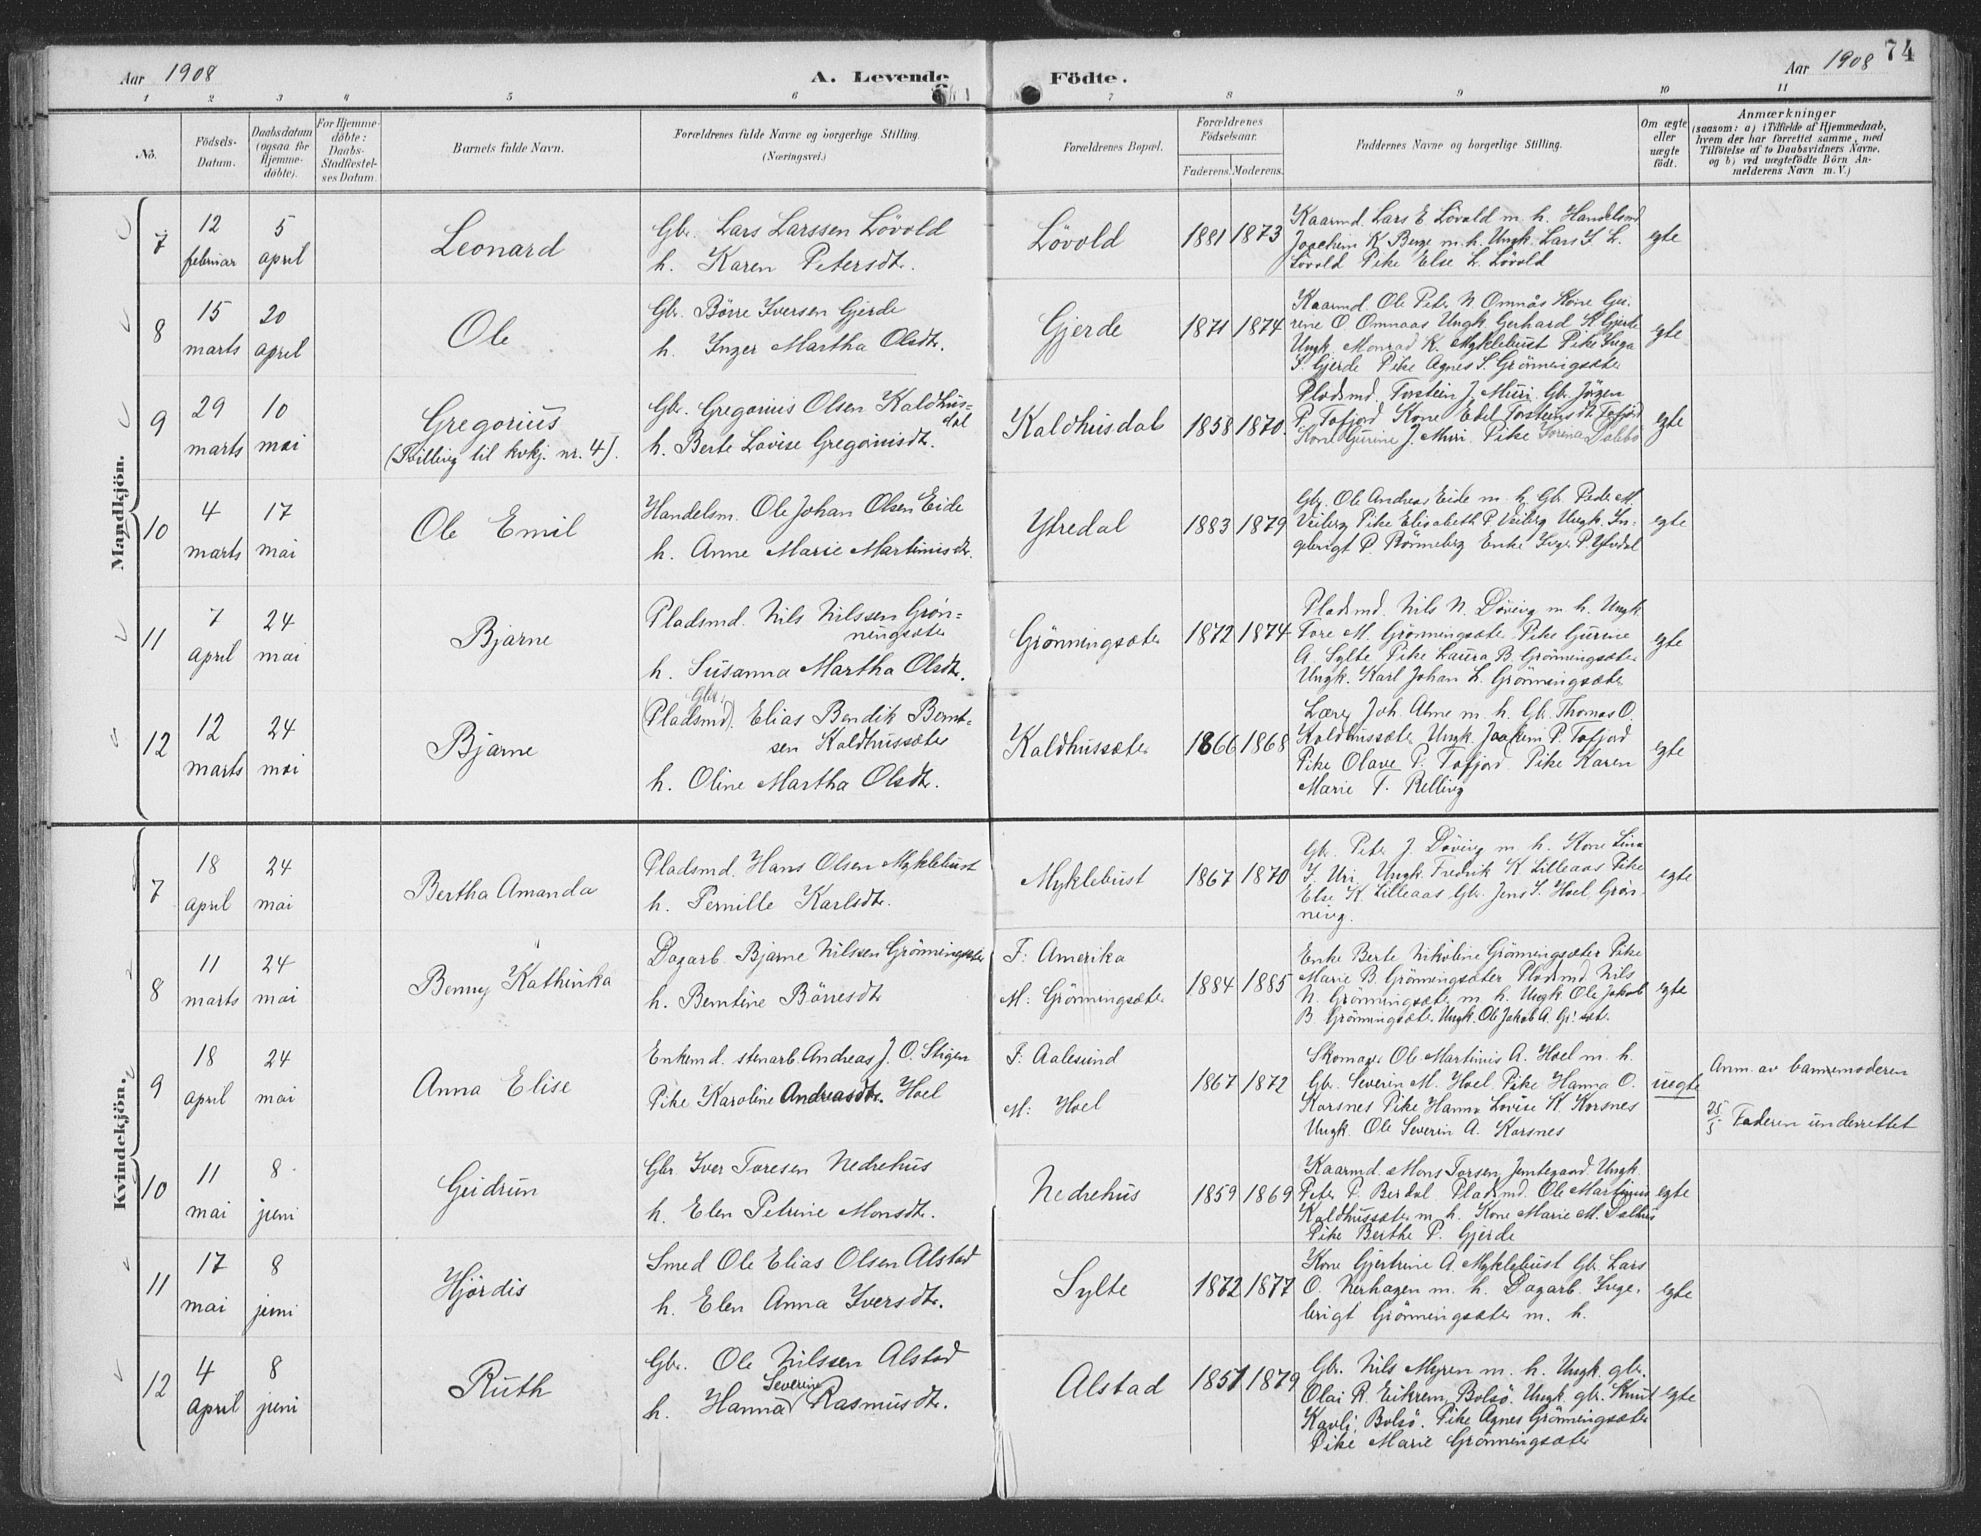 Aar 1908
A. Levende
Födte.
Aar 1908
74
1 2 3 4 5 6 7 8 9 10 11
No.
Födsels-
Datum.
Daabsdatum
(ogsaa for
Hjemme-
döbte).
For Hjemme-
döbte:
Daabs-
Stadfæstel-
ses Datum.
Barnets fulde Navn.
Forældrenes fulde Navne og borgerlige Stilling.
(Næringsvei.)
Forældrenes Bopæl.
Forældrenes
Födselsaar.
Faderens. Moderens.
Faddernes Navne og borgerlige Stilling.
Om ægte
eller
uægte
født.
Anmærkninger
(saasom: a) i Tilfælde af Hjemmedaab,
hvem der har forrettet samme, med
Tilföielse af to Daabsvidners Navne,
og b) ved uægtefödte Börn An-
melderens Navn m. V.)
Mandkjön.
7
12
februar
5
april
Leonard
Gbr. Lars Larssen Lövold
h. Karen Petersdtr.
Lövold
1881 1873
Kaarmd. Lars E Lövold m. h. Handelsmd
Joachim K Berge m. h. Ungk. Lars S. L.
Lövold Pike Else L. Lövold
egte
8
15
marts
20
april
Ole
Gbr. Börre Iversen Gjerde
h. Inger Martha Olsdtr.
Gjerde
1871 1874
Kaarmd. Ole Peter N Omnås Kone Gu-
rine O Omnaas Ungk. Gerhard K. Gjerde
Ungk. Monrad K. Myklebust Pike Inga
S. Gjerde Pike Agnes S. Grönningsæter
egte
9
29
marts
10
mai
Gregorius
(Tvilling til kvkj. nr. 4).
Gbr. Gregorius Olsen Kaldhus-
dal
h. Berte Lovise Gregoriusdtr.
Kaldhusdal
1858 1870.
Pladsmd. Torstein J. Muri. Gbr. Jörgen
P. Tafjord Kone Edel Torsteinsdtr Tafjord
Kone Gurine J. Muri. Pike
egte
10
4
marts
17
mai
Ole Emil
Handelsm. Ole Johan Olsen Eide
h. Anne Marie Martinusdtr.
Ytredal
1883 1879
Gbr. Ole Andreas Eide m. h. Gbr. Peder M.
Veiberg Pike Elisabeth P Veiberg Ungk. In-
gebrigt P Rönneberg Enke Inger P. Ytredal
egte
11
7
april
24
mai
Bjarne
Pladsmd. Nils Nilssen Grön-
ningsæter
h. Susanna Martha Olsdtr.
Grönningsæter
1872 1874
Pladsmd. Nils N. Döving m. h. Ungk.
Tore M. Grönningsæter Pike Gurine
A. Sylte Pike Laura B. Grönningsæter
Ungk. Karl Johan L. Grönningsæter
egte
12
12
marts
24
mai
Bjarne
Gbr.
(Pladsmd). Elias Bendik Bernt-
sen Kaldhussæter
h. Oline Martha Olsdtr.
Kaldhussæter
1866 1868
Lærer Joh. Alme m. h. Gbr. Thomas O.
Kaldhussæter Ungk. Joakim P. Tafjord
Pike Olave P. Tafjord. Pike Karen
Marie T. Relling
egte
Kvindekjön.
7
18
april
24
mai
Bertha Amanda
Pladsmd. Hans Olsen Myklebust
h. Pernille Karlsdtr.
Myklebust
1867 1870
Gbr. Peter J. Döving m. h. Kone Lina
I. Uri. Ungk. Fredrik K. Lilleaas Pike
Else K. Lilleaas Gbr. Jens S. Hoel, Grön-
ning.
egte
8
11
marts
24
mai
Benny Kathinka
Dagarb. Bjarne Nilssen Grönningsæter
h. Berntine Börresdtr
F: Amerika
M: Grönningsæter
1884 1885
Enke Berte Nikoline Grönningsæter Pike
Marie B. Grönningsæter Pladsmd. Nils
N. Grönningsæter m. h. Ungk. Ole Jakob
B. Grönningsæter Ungk. Ole Jakob A. Gr: sæter
egte
9
18
april
24
mai
Anna Elise
Enkemd. stenarb. Andreas J. O. Stigen
Pike Karoline Andreasdtr. Hoel
F: Aalesund
M: Hoel
1867 1872
Skomager Ole Martinus A. Hoel m. h.
Gbr. Severin M. Hoel. Pike Hanna O.
Korsnes Pike Hanna Lovise K. Korsnes
Ungk. Ole Severin A. Korsnes
uegte
Anm. av barnemoderen
25/5 Faderen underrettet
10
11
mai
8
juni
Gudrun
Gbr Iver Toresen Nedrehus
h. Elen Petrine Monsdtr.
Nedrehus
1859 1869
Kaarmd. Mons Torsen Jemtegaard Ungk.
Peter P. Berdal. Pladsmd. Ole Martinus
Kaldhussæter m. h. Kone Marie M. Dalhus
Pike Berthe P. Gjerde
egte
11
17
mai
8
juni
Hjördis
Smed Ole Elias Olsen Alstad
h. Elen Anna Iversdtr.
Sylte
1872 1877
Kone Gjertrine A. Myklebust Gbr. Lars
O. Kerhagen m. h. Dagarb. Inge-
brigt Grönningsæter m. h.
egte
12
4
april
8
juni
Ruth
Gbr. Ole Nilssen Alstad
Severine
h. Hanna Rasmusdtr.
Alstad
1851 1879
Gbr. Nils Myren m. h. Ungk. gbr.
Olai R. Eikrem, Bolsö. Ungk. gbr. Knut
Kavli, Bolsö. Pike Agnes Grönningsæter
Pike Marie Grönningsæter
egte